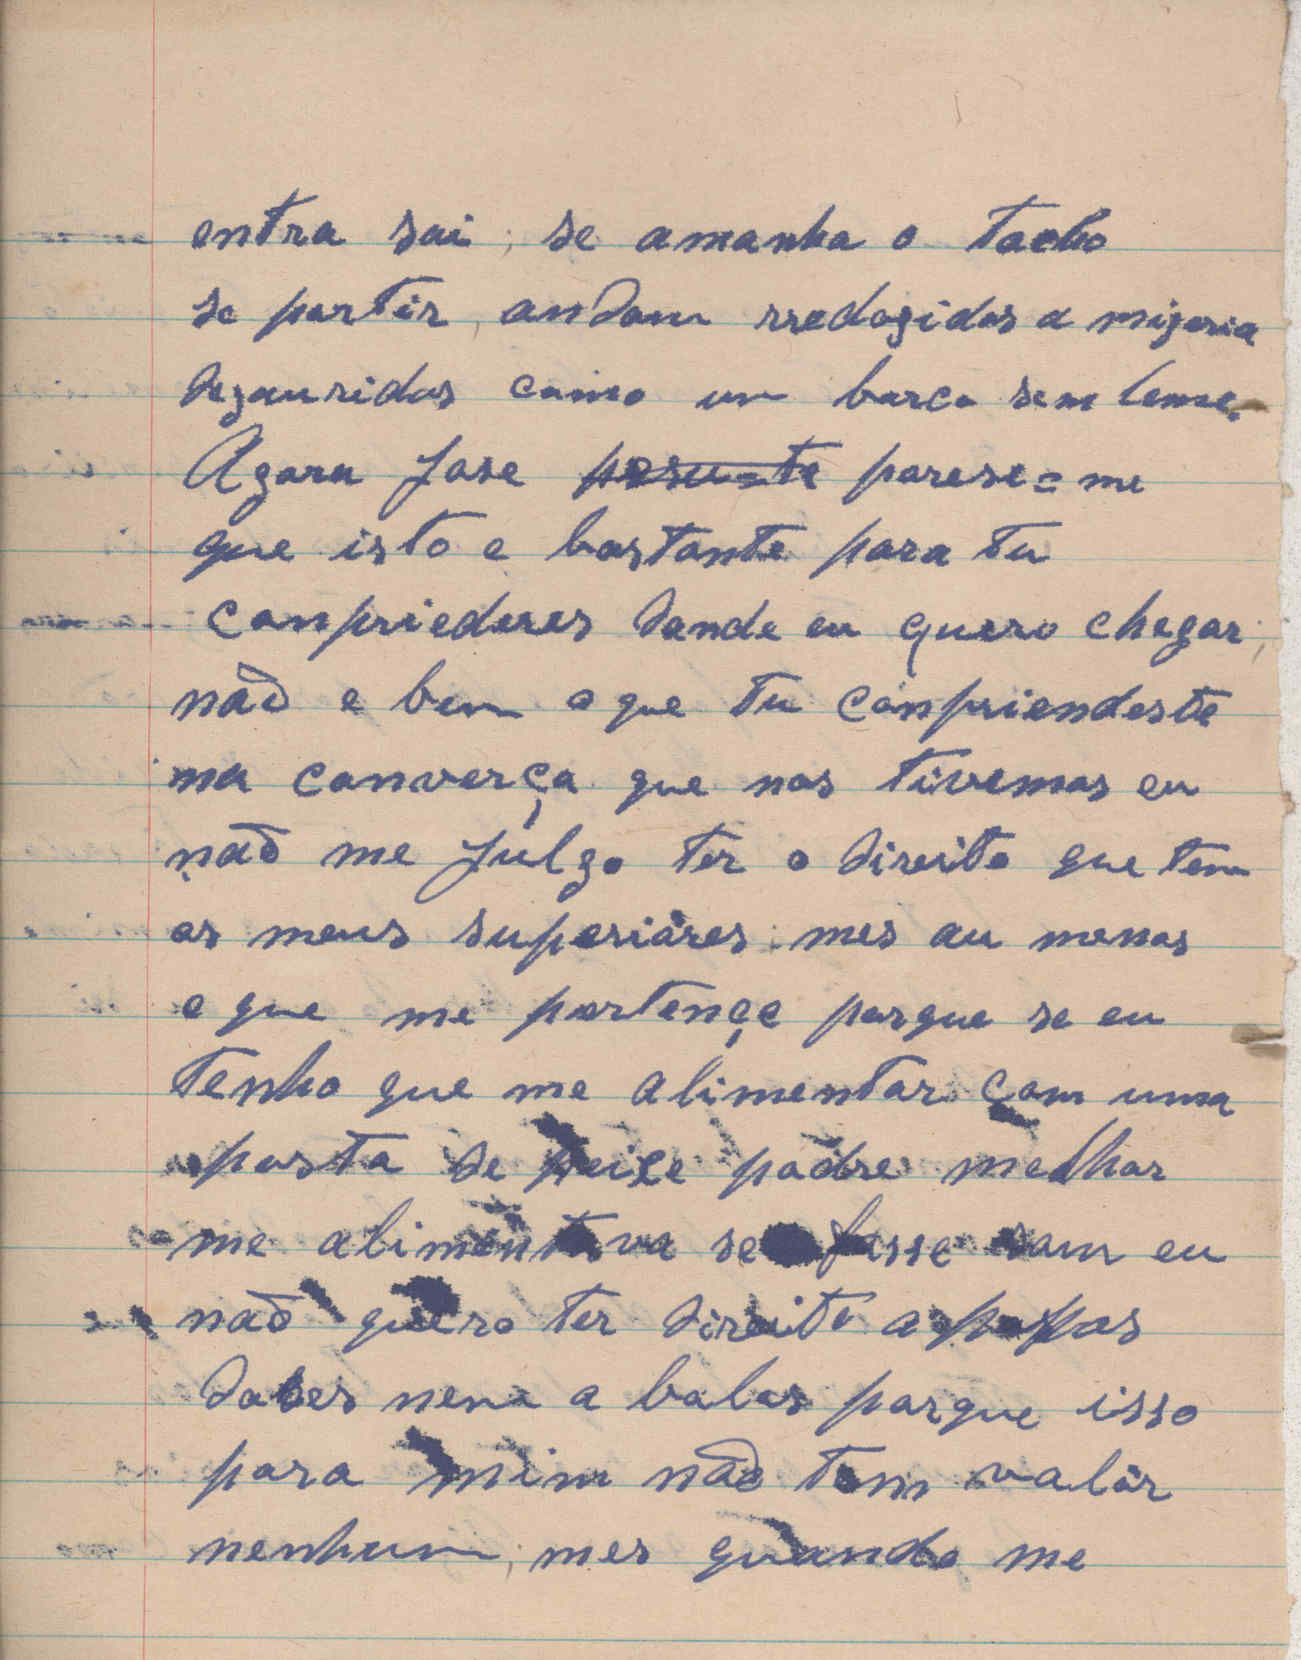 entra sai, se amanha o tacho
se partir, andam rredogidos a migeria
dezauridos como um barco sem leme.
Agora Jose parese=me
que isto e bastante para tu
conpriederes donde eu quero chegar,
não e bem o que tu conpriendeste
na converça que nos tivemos eu
não me julgo ter o direito que tem
os meus superióres mes au menos
o que me pertençe porque se eu
tenho que me alimentar com uma
posta de peixe podre melhor
me alimentava se fosse som eu
não quero ter direito a papos
doces nem a bolos porque isso
para mim não tem valôr
nenhum, mes quando me